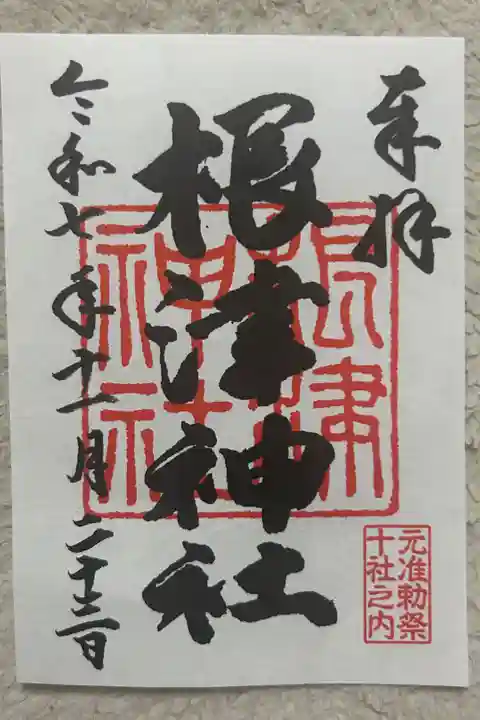 奉拝
根津神社
令和七年十一月二十三日
根津
神社
元准勅祭
十社之内